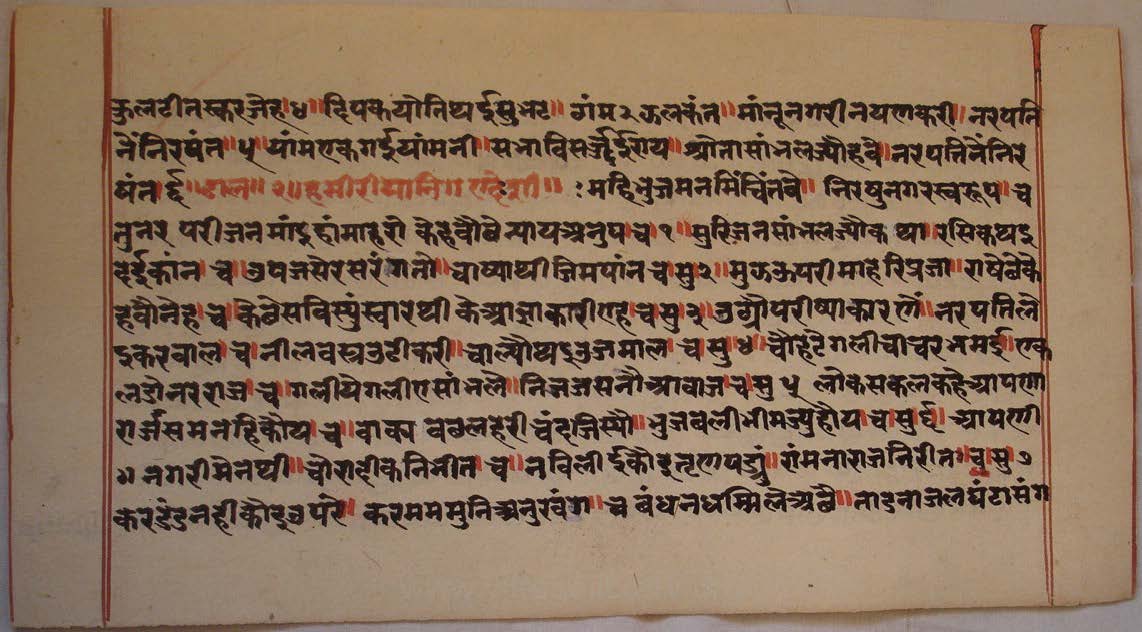 कुलटीनस्करजेह ४ ॥ दिपकयोतिष्पर्दुसुभट ॥ गंम २ ऊलकंत ॥ मांनूनगरीनयणकरी । नरपति
नैंनिरषंत ॥ ५ यांमएकगईयांमनी । सभाविसर्जूईराय । श्रोतासांभलज्यौहवै । नरपतिनेंनिरे
षंत ६ ॥ ढाल ॥ २ ॥ हमीरीमानि ॥ महिभुजमनमिंचिंतवै ॥ निरषुनगरस्वरूप । च
नुनर परीजनमांदुहांमाहरौ केहवौछैन्यायअनुप च १ सुरिजनसांभलज्यौकथा । रसिकथइ
देईकांन । च उपजसेरसरंगनौ । चाष्याथीजिमपांन च सु २ मुऊऊपरीमाहेरिप्रजा । राषेछेकै
हवौनेह । च कैछैसविस्युंस्वारथी कैआज्ञाकारीएह । च सु ३ उठ्यौपरीष्याकारणें । नरपतिलै
इकरवाल च । नीलवस्त्रउढीकरी । चाल्यौथइउजमाल । च सु ४ चौहटैगलीचाचरभमई । एक
लडोनरराज । च गलीयेगलीएसांभलै ॥ निजजसनौआवाज । च सु ५ लोकसकलकहैआपणा
राजंसमनहिकौय च । वाका वेवलहेरीचंदजिस्यौ ॥ भुजबलीभीमज्युहौय । च सु ६ आपणी
॥ नगरीमेनथी । चौरादीकनिभीत च । नविलीईकौइतृणपडयुं । रांमनाराजनिरीत । च सु ७
करदंडनहीकौइउपरें । करमममुनिअनुरवंगे । च बंधनधम्मिलैअछै । नादनाजलघंटासंग